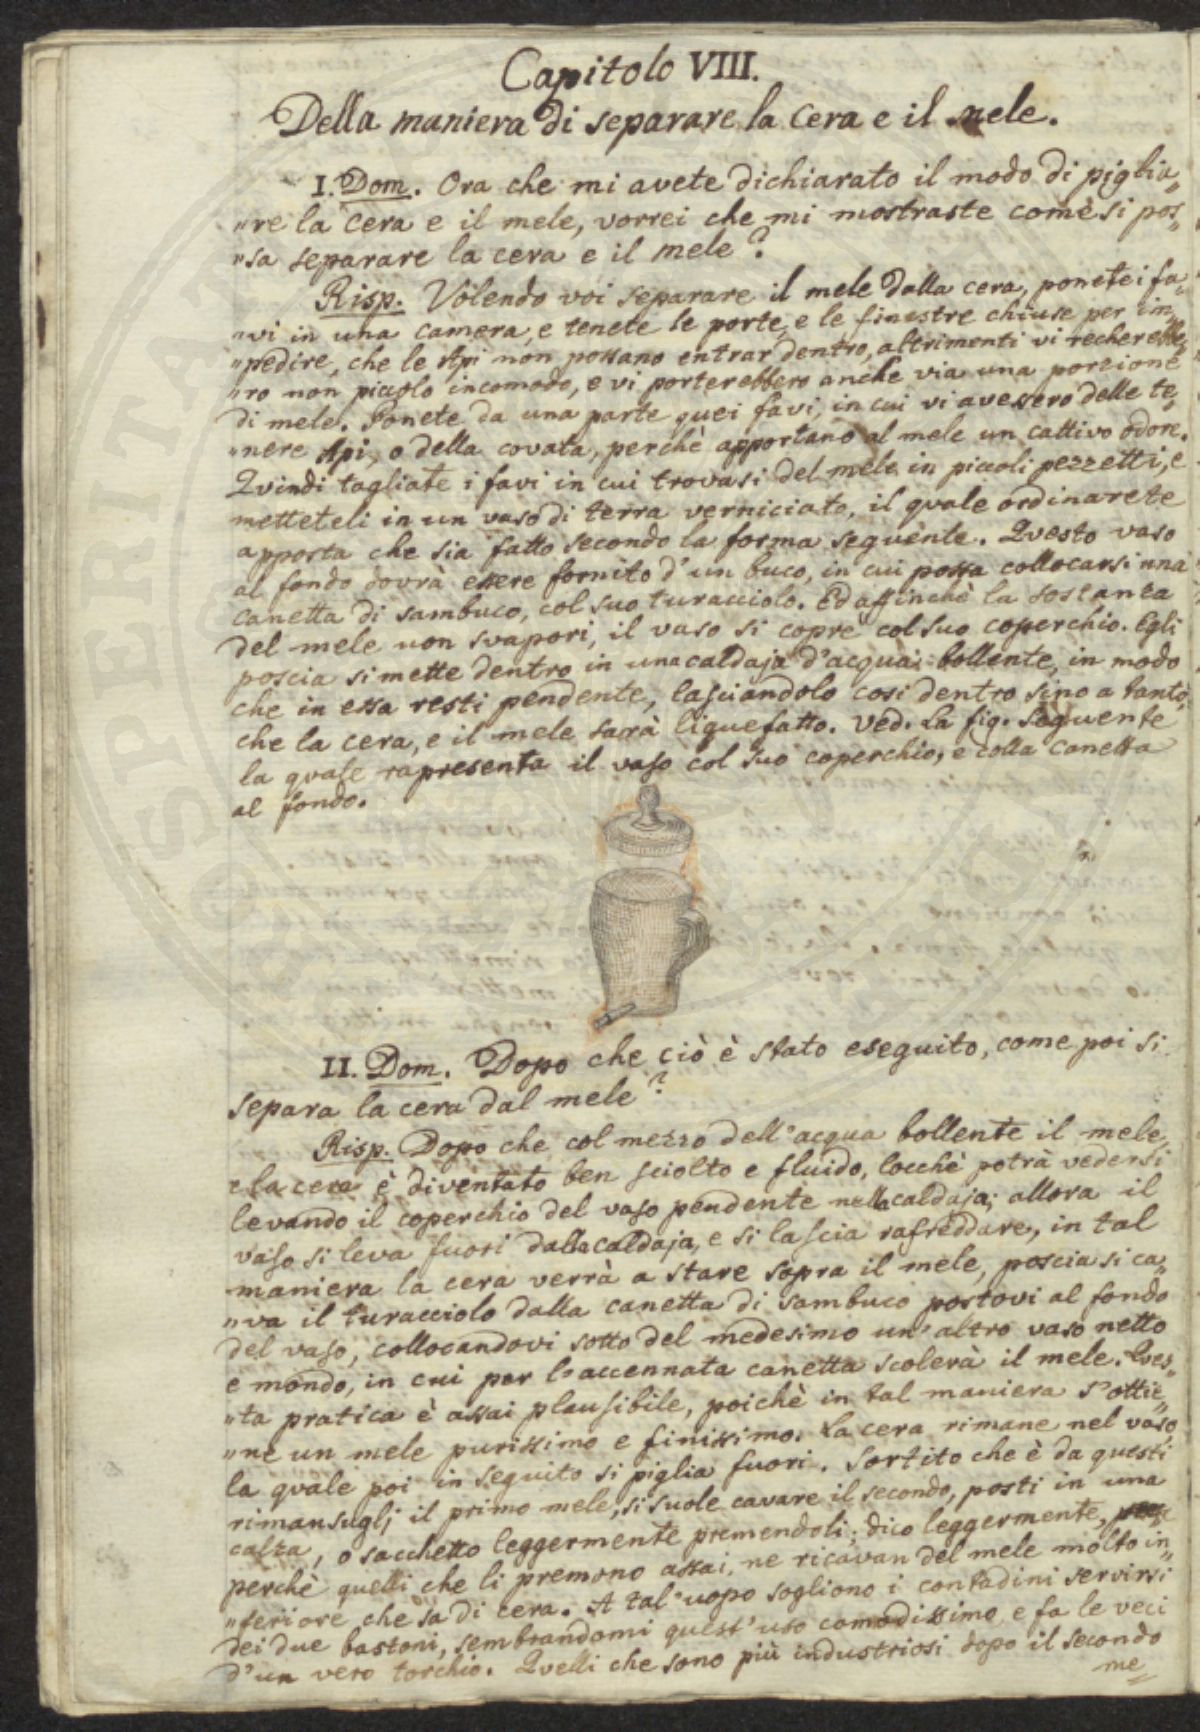 Capitolo VIII.
Della maniera di separare la cera e il mele.
I. Dom. Ora che mi avete dichiarato il modo di piglia„
„re la cera e il mele, vorrei che mi mostraste com'è si pos„
„sa separare la cera e il mele?
Risp. Volendo voi separare il mele dalla cera, ponete i fa„
„vi in una camera, e tenete le porte, e le finestre chiuse per im„
„pedire, che le Api non possano entrar dentro, altrimenti vi recherebbe„
„ro non piccolo incomodo, e vi porterebbero anche via una porzione
di mele. Ponete da una parte quei favi, in cui vi avessero delle te„
„nere Api, o della covata, perchè apportano al mele un cattivo odore.
Quindi tagliate i favi in cui trovasi del mele in piccoli pezzetti, e
metteteli in un vaso di terra verniciato, il quale ordinarete
apposta che sia fatto secondo la forma seguente. Questo vaso
al fondo dovrà essere fornito d'un buco, in cui possa collocarsi una
canetta di sambuco, col suo turacciolo. Ed affinchè la sostanza
del mele non svapori, il vaso si copre col suo coperchio. Egli
poscia si mette dentro in una caldaja d'acqua bollente, in modo
che in essa resti pendente, lasciandolo così dentro sino a tanto,
che la cera, e il mele sarà liquefatto. Ved. la fig. seguente
la quale rapresenta il vaso col suo coperchio, e colla canetta
al fondo.
II. Dom. Dopo che ciò è stato eseguito, come poi si
separa la cera dal mele?
Risp. Dopo che col mezzo dell'acqua bollente il mele
e la cera è diventato ben sciolto e fluido, locchè potrà vedersi
levando il coperchio del vaso pendente nella caldaja; allora il
vaso si leva fuori dalla caldaja, e si lascia rafreddare, in tal
maniera la cera verrà a stare sopra il mele, poscia si ca„
„va il turacciolo dalla canetta di sambuco postovi al fondo
del vaso, collocandovi sotto del medesimo un'altro vaso netto
e mondo, in cui per l'accennata canetta scolerà il mele. Ques„
„ta pratica è assai plausibile, poichè in tal maniera s'ottie„
„ne un mele purissimo e finissimo. La cera rimane nel vaso,
la quale poi in seguito si piglia fuori. Sortito che è da questi
rimansuglj il primo mele, si suole cavare il secondo, posti in una
calza, o sacchetto leggermente premendoli; dico leggermente,
perchè quelli che li premono assai, ne ricavan del mele molto in„
„feriore che sa di cera. A tal'uopo sogliono i contadini servirsi
dei due bastoni, sembrandomi quest'uso comodissimo, e fa le veci
d'un vero torchio. Quelli che sono più industriosi dopo il secondo
me